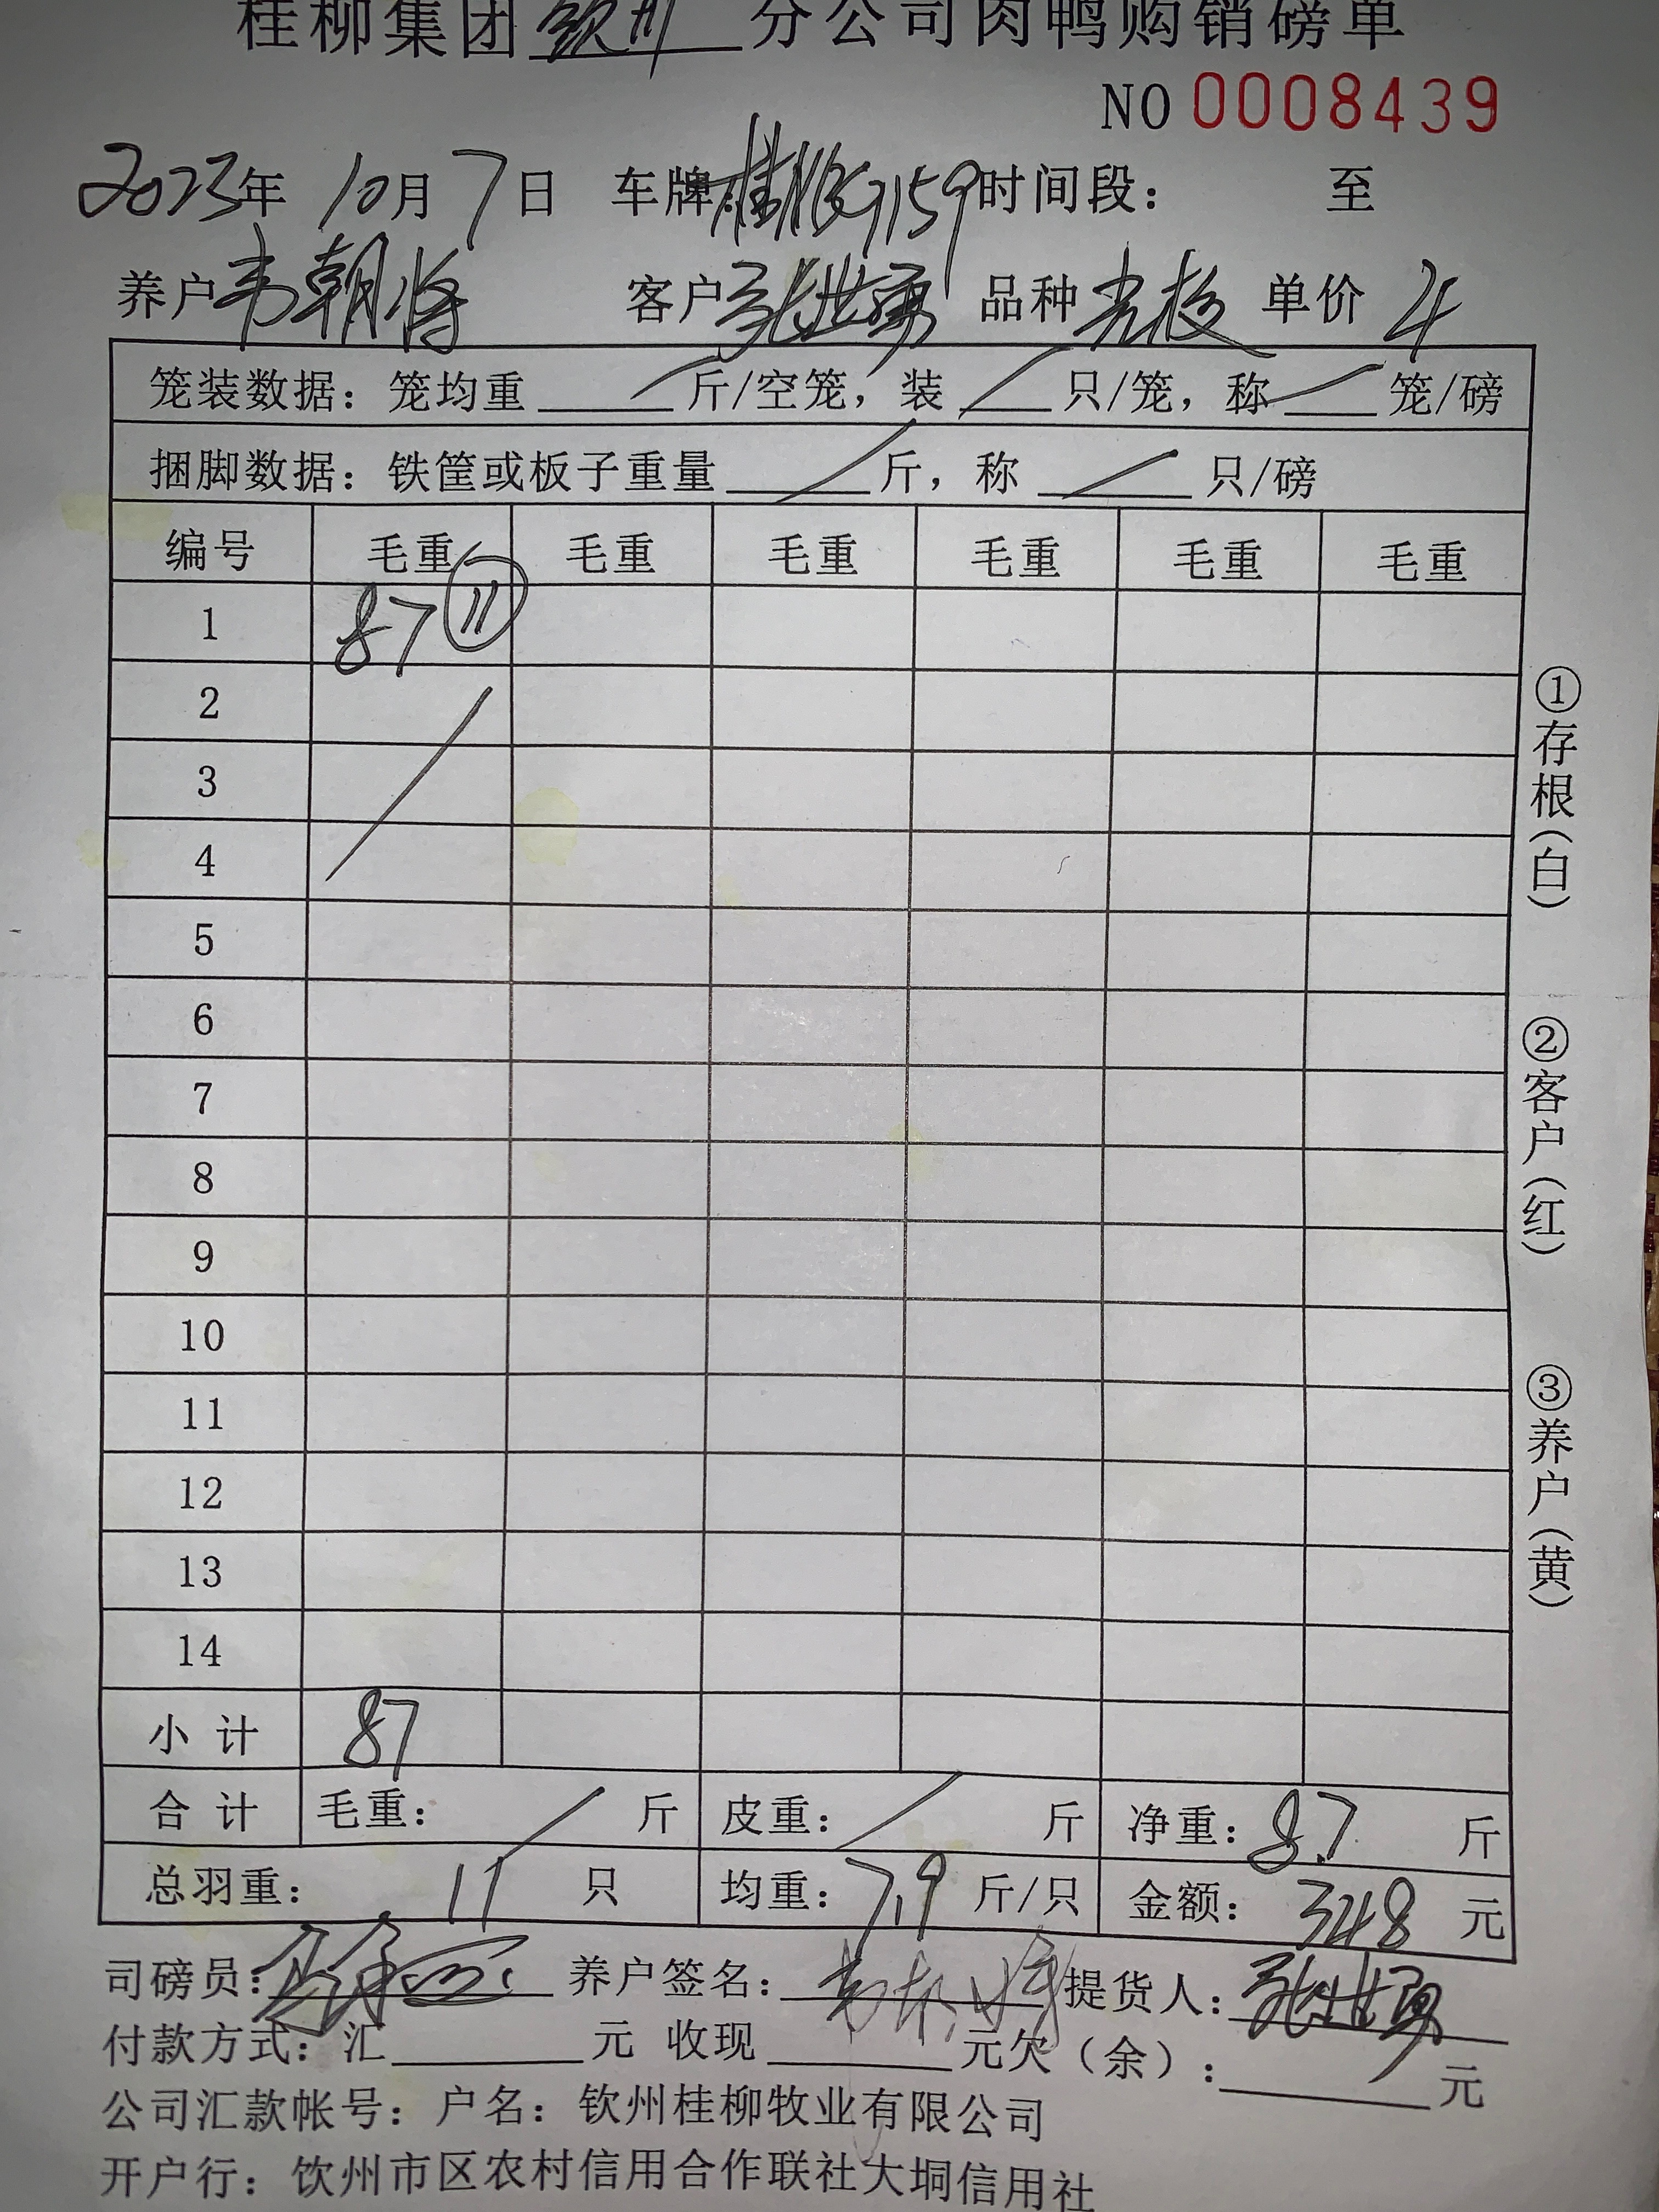 桂柳集团钦州分公司肉鸭购销磅单
NO 0008439
2023年 10月 7日 车牌: 时间段: 至
养户 韦朝将 客户 张世勇 品种 单价 4
笼装数据: 笼均重 斤/空笼, 装 只/笼, 称 笼/磅
捆脚数据: 铁筐或板子重量 斤, 称 只/磅
编号 毛重 毛重 毛重 毛重 毛重 毛重
1 87 ⑪
2
3
4
5
6
7
8
9
10
11
12
13
14
小计 87
合计 毛重: 斤 皮重: 斤 净重: 87 斤
总羽重: 11 只 均重: 7.9 斤/只 金额: 348 元
司磅员: 养户签名: 提货人: 张世勇
付款方式: 汇 元 收现 元欠(余): 元
公司汇款帐号: 户名: 钦州桂柳牧业有限公司
开户行: 钦州市区农村信用合作联社大垌信用社
①存根(白)
②客户(红)
③养户(黄)